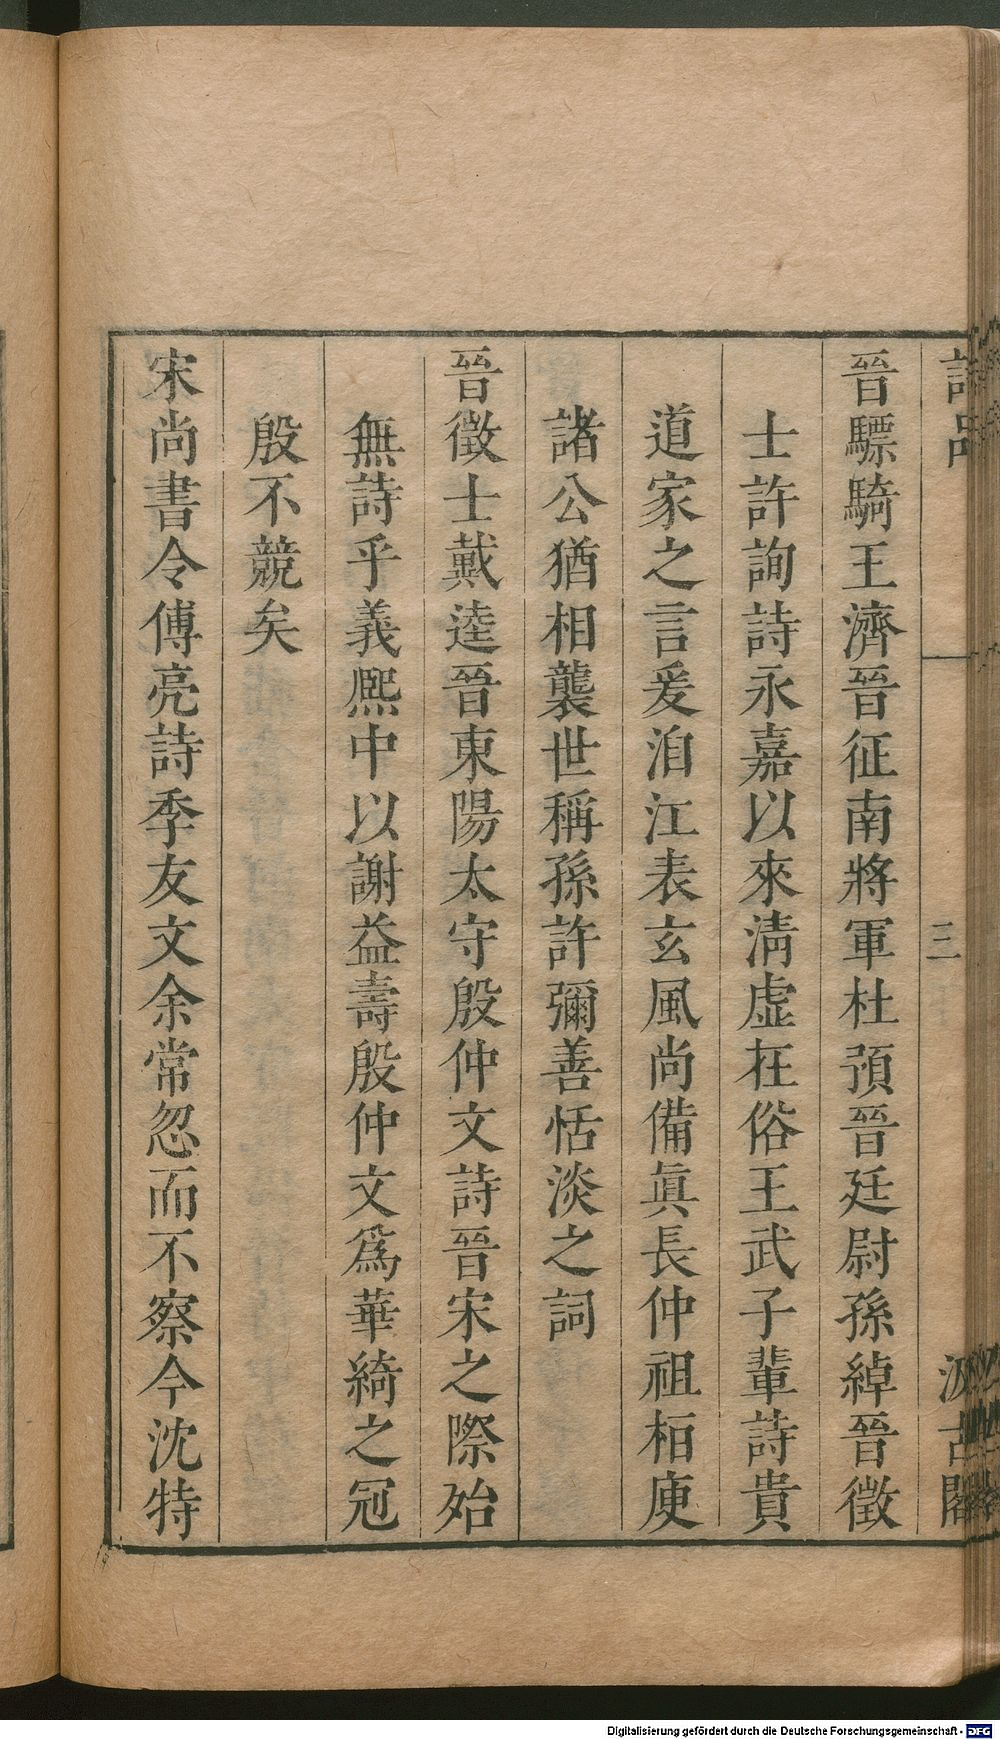 詩品
三
汲古閣
晉驃騎王濟晉征南將軍杜預晉廷尉孫綽晉徵
士許詢詩永嘉以來淸虛在俗王武子輩詩貴
道家之言爰洎江表玄風尚備眞長仲祖桓庾
諸公猶相襲世稱孫許彌善恬淡之詞
晉徵士戴逵晉東陽太守殷仲文詩晉宋之際殆
無詩乎義熙中以謝益壽殷仲文爲華綺之冠
殷不競矣
宋尚書令傅亮詩季友文余常忽而不察今沈特
Digitalisierung gefördert durch die Deutsche Forschungsgemeinschaft - DFG